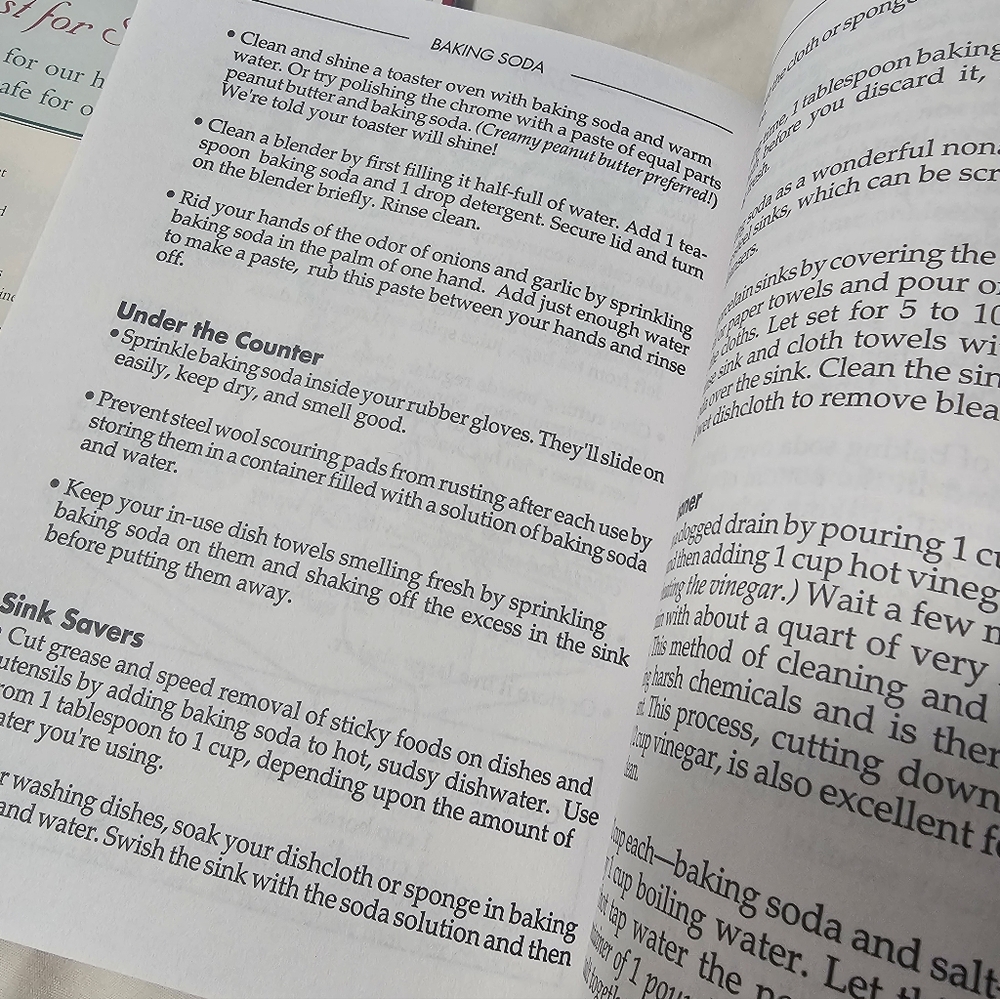 st for
for our h
afe for o
BAKING SODA
• Clean and shine a toaster oven with baking soda and warm
water. Or try polishing the chrome with a paste of equal parts
peanut butter and baking soda. (Creamy peanut butter preferred!)
We're told your toaster will shine!
• Clean a blender by first filling it half-full of water. Add 1 tea-
spoon baking soda and 1 drop detergent. Secure lid and turn
on the blender briefly. Rinse clean.
• Rid your hands of the odor of onions and garlic by sprinkling
baking soda in the palm of one hand. Add just enough water
to make a paste, rub this paste between your hands and rinse
off.
Under the Counter
• Sprinkle baking soda inside your rubber gloves. They'll slide on
easily, keep dry, and smell good.
• Prevent steel wool scouring pads from rusting after each use by
storing them in a container filled with a solution of baking soda
and water.
• Keep your in-use dish towels smelling fresh by sprinkling
baking soda on them and shaking off the excess in the sink
before putting them away.
Sink Savers
• Cut grease and speed removal of sticky foods on dishes and
utensils by adding baking soda to hot, sudsy dishwater. Use
rom 1 tablespoon to 1 cup, depending upon the amount of
ater you're using.
r washing dishes, soak your dishcloth or sponge in baking
and water. Swish the sink with the soda solution and then
the cloth or sponge
time, 1 tablespoon baking
before you discard it,
resh.
soda as a wonderful non
eel sinks, which can be scr
celain sinks by covering the
or paper towels and pour o
e cloths. Let set for 5 to 10
e sink and cloth towels wi
a over the sink. Clean the sin
wet dishcloth to remove blea
aner
clogged drain by pouring 1 cu
nd then adding 1 cup hot vineg
ating the vinegar.) Wait a few m
in with about a quart of very
This method of cleaning and
ng harsh chemicals and is ther
This process, cutting down
cup vinegar, is also excellent f
lean.
cup each—baking soda and salt
1 cup boiling water. Let th
hot tap water the
of 1 pou
togeth